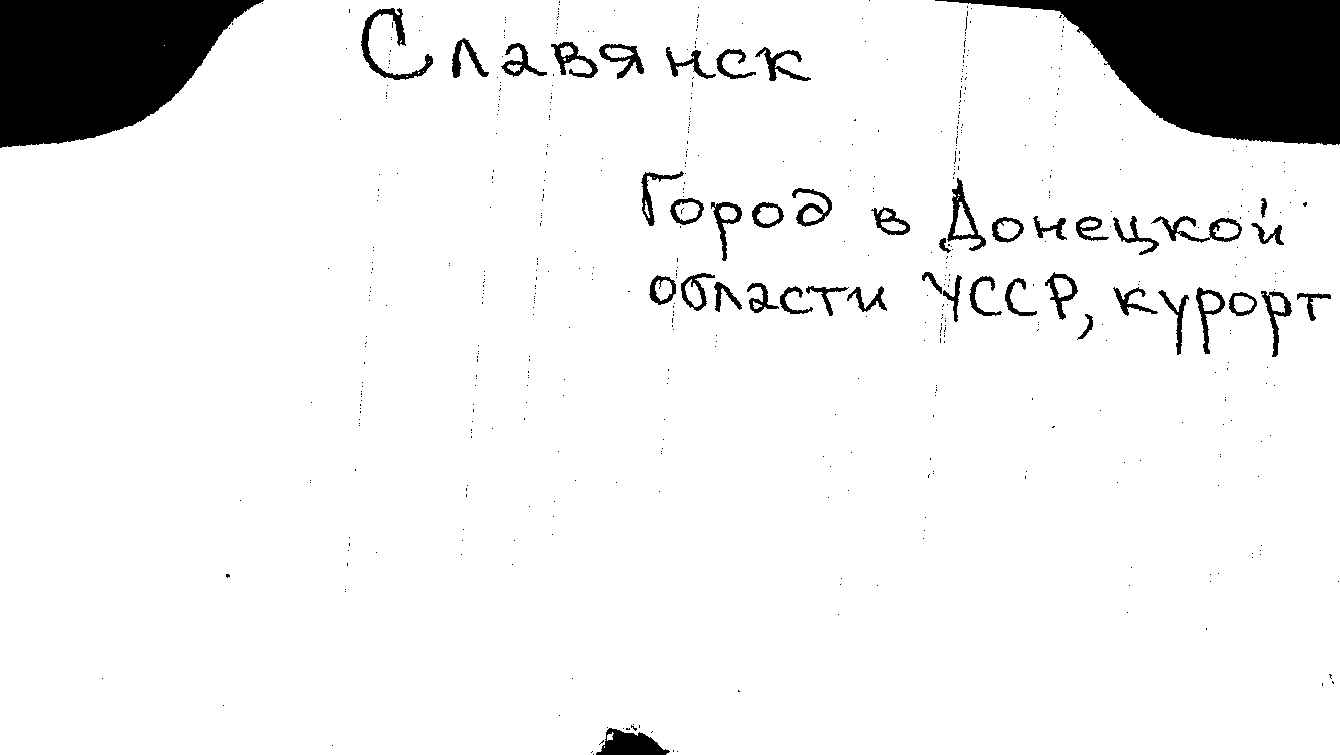 Славянск
Город в Донецкой
области УССР, курорт